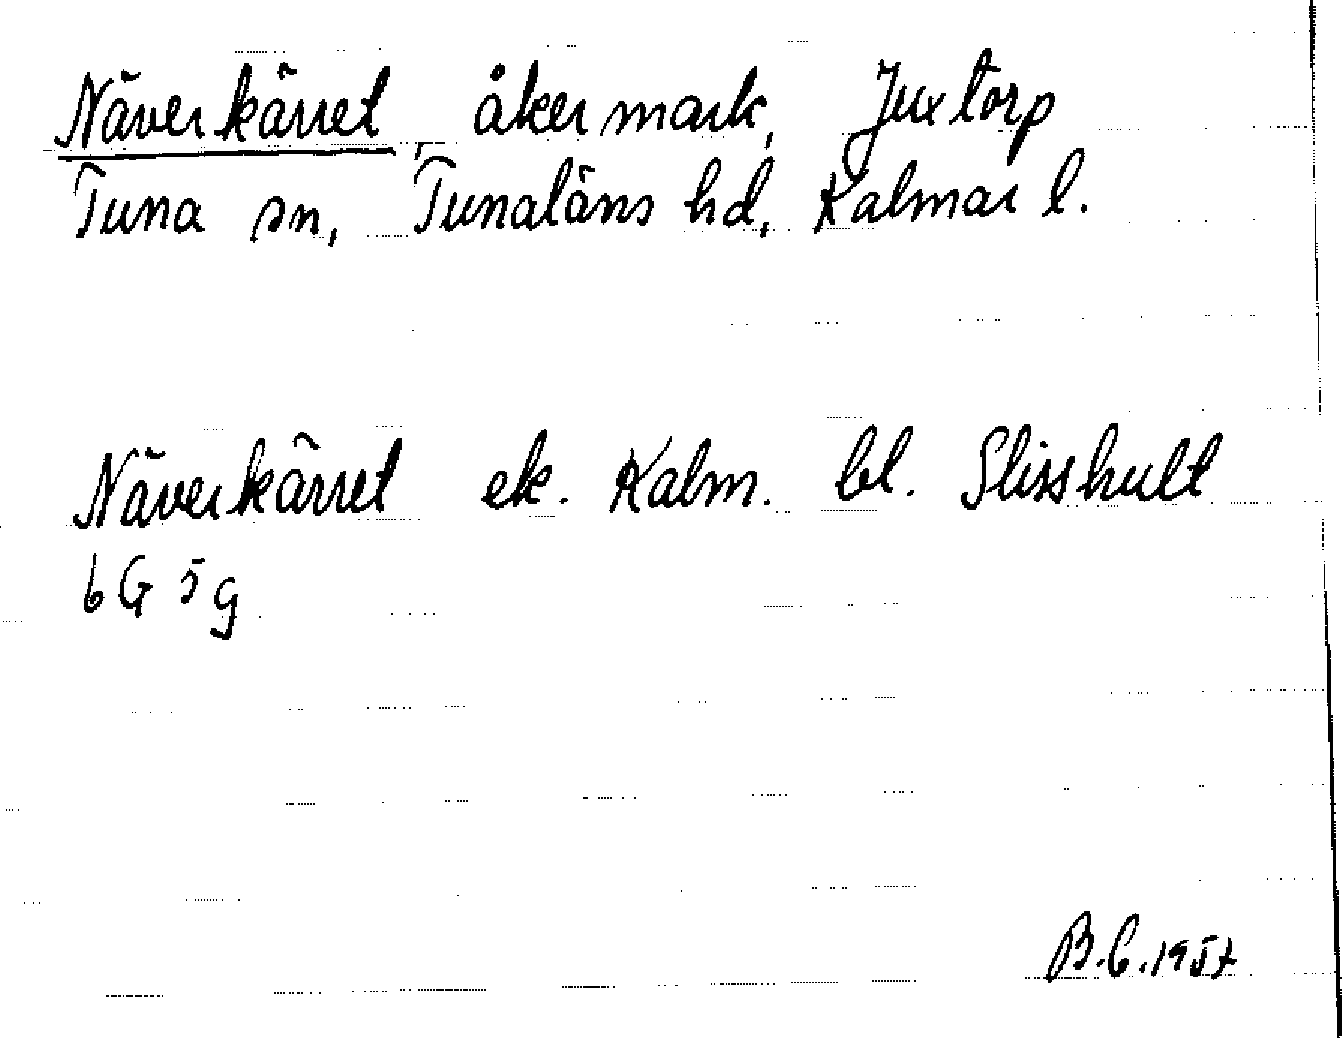 Näverkärret, åkermark, Juxtorp
Tuna sn, Tunaläns hd, Kalmar l.
Näverkärret ek. Kalm. bl. Slisshult
6G 5g
B.C. 1957